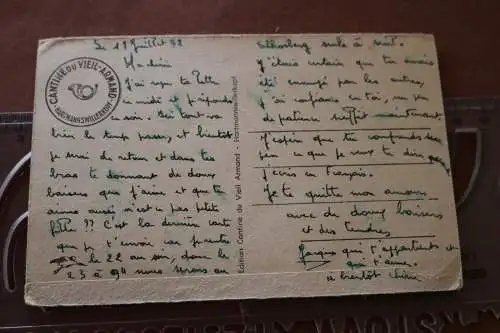 CANTINE DU VIEIL-ARMAND
HARTMANNSWILLERKOPF
Le 19 Juillet 52
Ma chérie
J'ai reçu ta lettre
à midi et je réponds
ce soir. Oui tout va
bien le temps passe, et bientôt
je serai de retour et dans tes
bras te donnant de doux
baisers que j'aime et que tu
aimes aussi n'est ce pas petite
fille ?? C'est la dernière carte
que je t'envoie car je rentre
le 22 au soir, donc le
23 à 9H nous serons au
Edition Cantine du Vieil Armand - Hartmannswillerkopf
seule à seul.
J'étais certain que tu avais
été envoyé par les autres,
j'ai confiance en toi, un peu
de patience suffit maintenant.
J'espère que tu comprends
peu ce que je veux te dire
j'écris en Français.
Je te quitte mon amour
avec de doux baisers
et des tendres
qui t'appartient et
qui t'aime.
à bientôt chérie